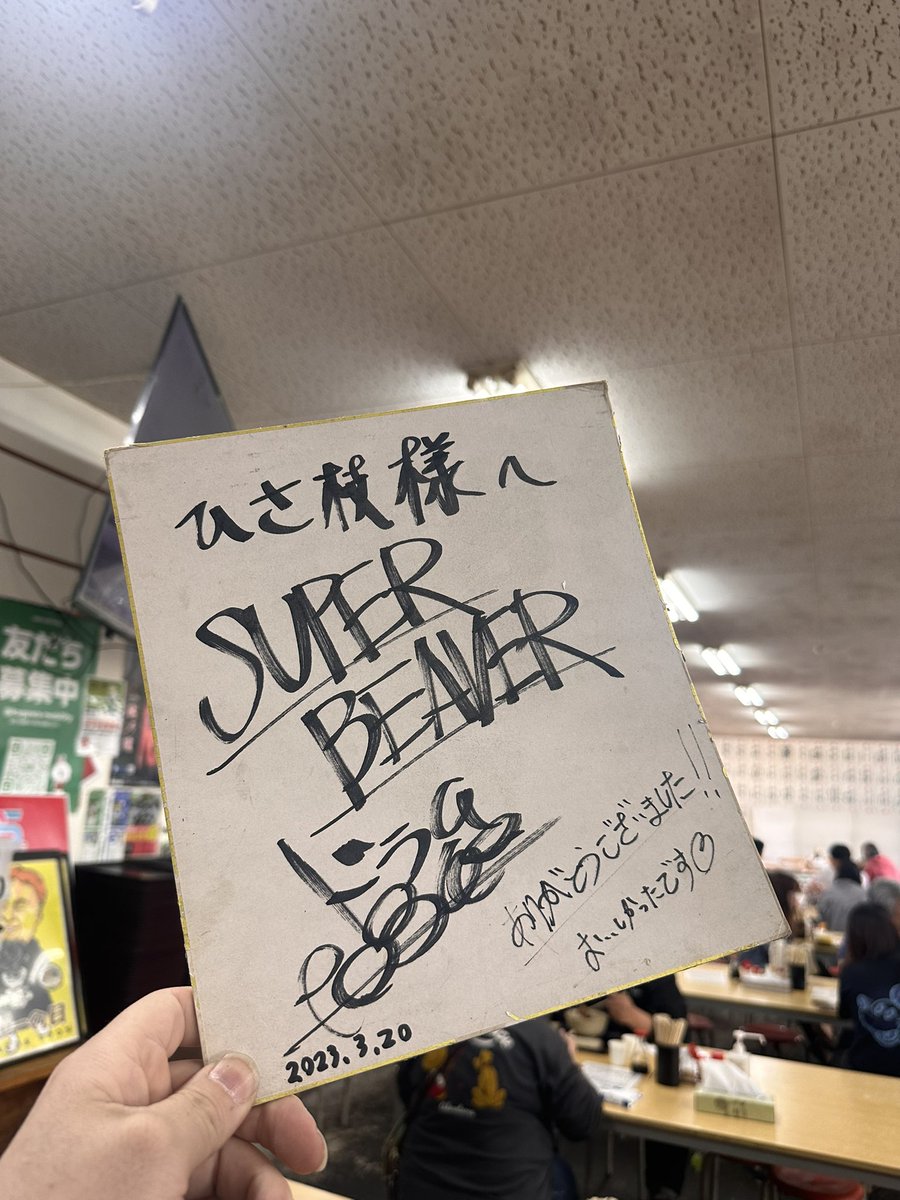 ひさ枝様へ
SUPER
BEAVER
ありがとうございました!!
おいしかったです
2023.3.20
友だち
募集中